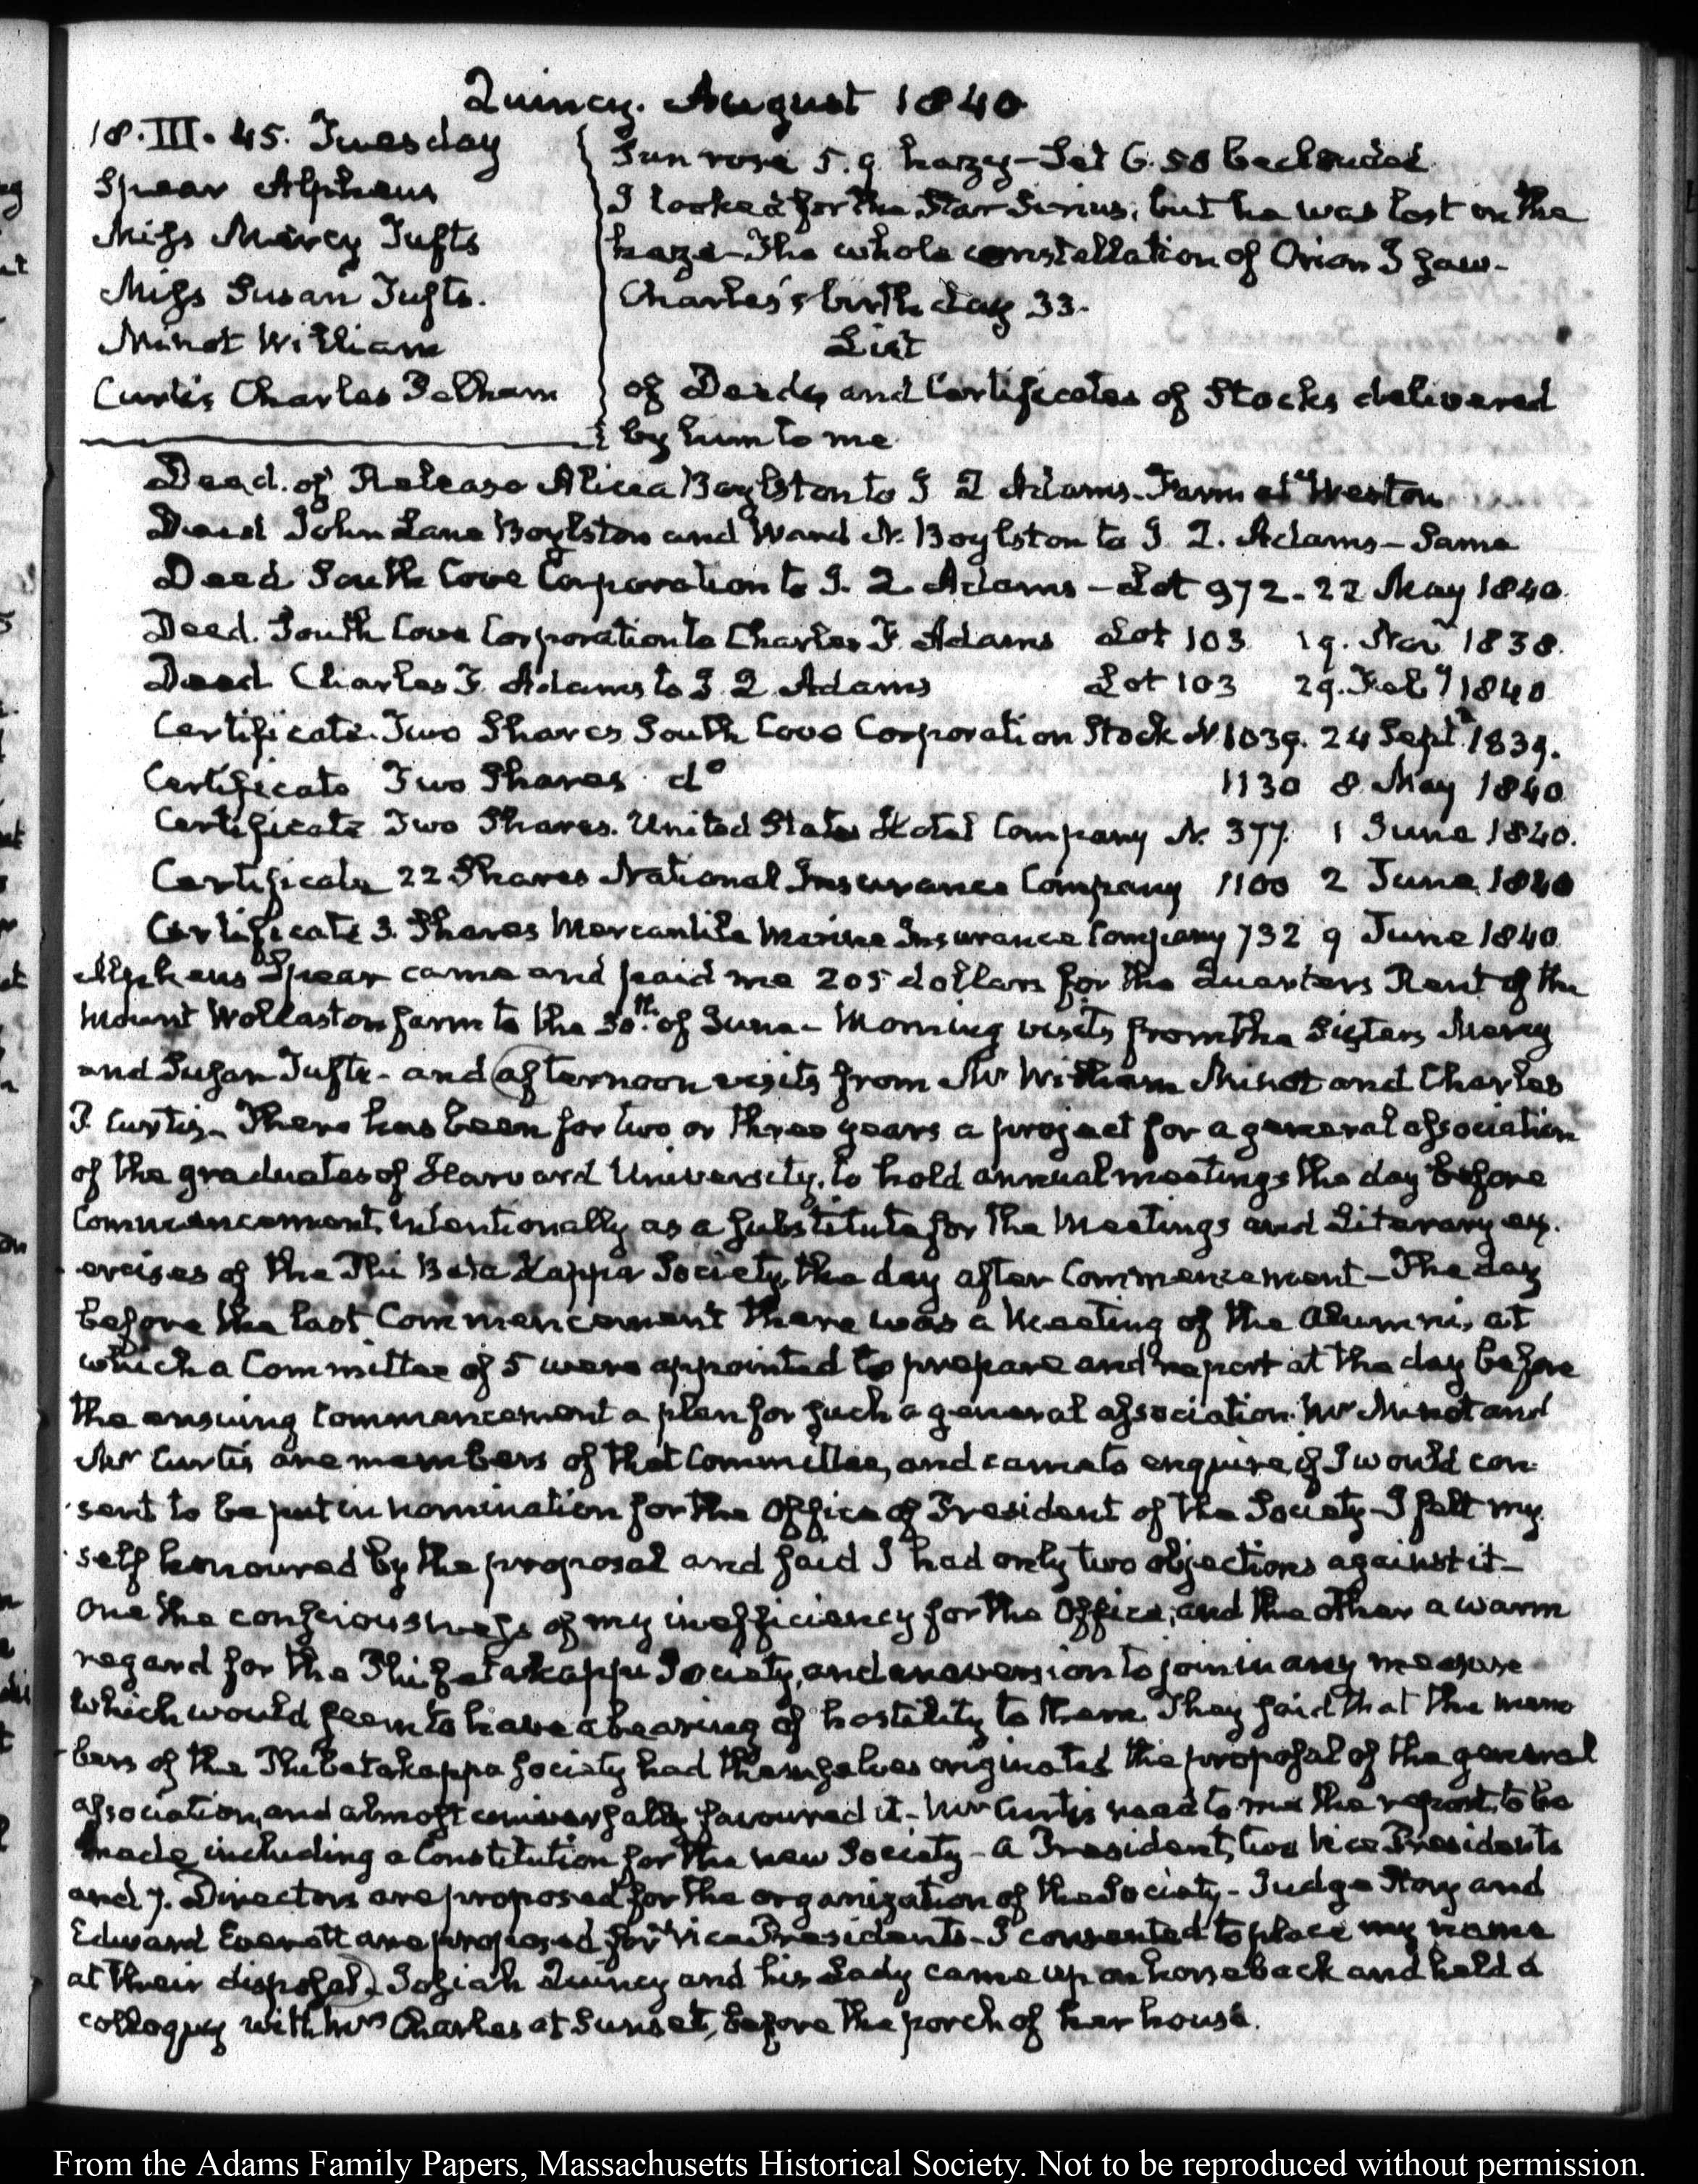 Quincy. August 1840
18. III. 45. Tuesday
Spear Alpheus
Miss Mercy Tufts
Miss Susan Tufts.
Minot William
Curtis Charles Pelham
Sun rose 5.9 hazy—Set 6.50 beclouded
I looked for the Star Sirius; but he was lost in the
haze—The whole constellation of Orion I saw—
Charles's birth day 33.
List
of Deeds and Certificates of Stocks delivered
by him to me
Deed of Release Alicia Boylston to J Q Adams. Farm at Weston
Deed John Lane Boylston and Ward N. Boylston to J. Q. Adams—Same
Deed South Cove Corporation to J. Q. Adams—Lot 972—22 May 1840.
Deed. South Cove Corporation to Charles F. Adams Lot 103 19. Nov 1838.
Deed Charles F. Adams to J. Q. Adams Lot 103 29. Feby 1840
Certificate. Two Shares South Cove Corporation Stock N 1039. 24 Sept 1839.
Certificate Two Shares do 1130 8 May 1840
Certificate Two Shares. United States Hotel Company N. 377. 1 June 1840.
Certificate 22 Shares National Insurance Company 1100 2 June 1840
Certificate 3. Shares Mercantile Marine Insurance Company 732 9 June 1840
Alpheus Spear came and paid me 205 dollars for the Quarters Rent of the
Mount Wollaston farm to the 30th. of June—Morning visits from the Sisters Mercy
and Susan Tufts—and afternoon visits from Mr William Minot and Charles
P. Curtis—There has been for two or three years a project for a general association
of the graduates of Harvard University, to hold annual meetings the day before
Commencement, intentionally as a substitute for the Meetings and Literary ex-
ercises of the Phi Beta Kappa Society, the day after Commencement—The day
before the last Commencement there was a Meeting of the Alumni, at
which a Committee of 5 were appointed to prepare and report at the day before
the ensuing Commencement a plan for such a general association. Mr Minot and
Mr Curtis are members of that Committee, and came to enquire, if I would con-
sent to be put in nomination for the Office of President of the Society—I felt my-
self honoured by the proposal and said I had only two objections against it—
One the consciousness of my inefficiency for the Office; and the other a warm
regard for the Phi betakappa Society, and an aversion to join in any measure
which would seem to have a bearing of hostility to them. They said that the mem-
bers of the Phi betakappa Society had themselves originated the proposal of the general
association, and almost universally favoured it—Mr Curtis read to me the report, to be
made, including a Constitution for the new Society—a President, two Vice Presidents
and 7. Directors are proposed for the organization of the Society—Judge Story and
Edward Everett are proposed for Vice Presidents—I consented to place my name
at their disposal. Josiah Quincy and his Lady came up on horseback and held a
colloquy with Mrs Charles at Sunset, before the porch of her house.
From the Adams Family Papers, Massachusetts Historical Society. Not to be reproduced without permission.